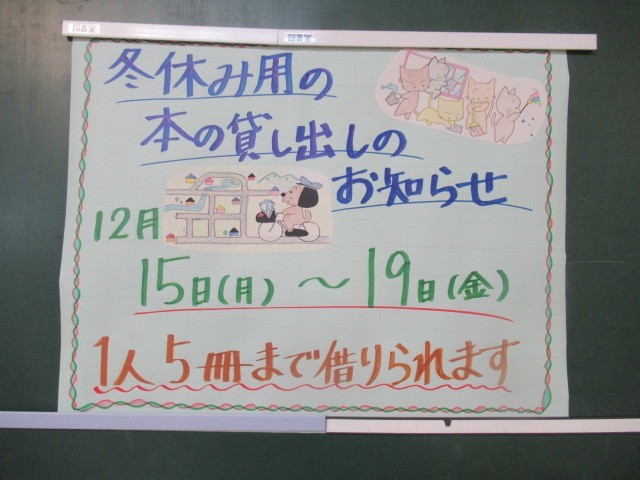 図書室
図書室
冬休み用の
本の貸し出しの
お知らせ
12月
15日(月)～19日(金)
1人5冊まで借りられます